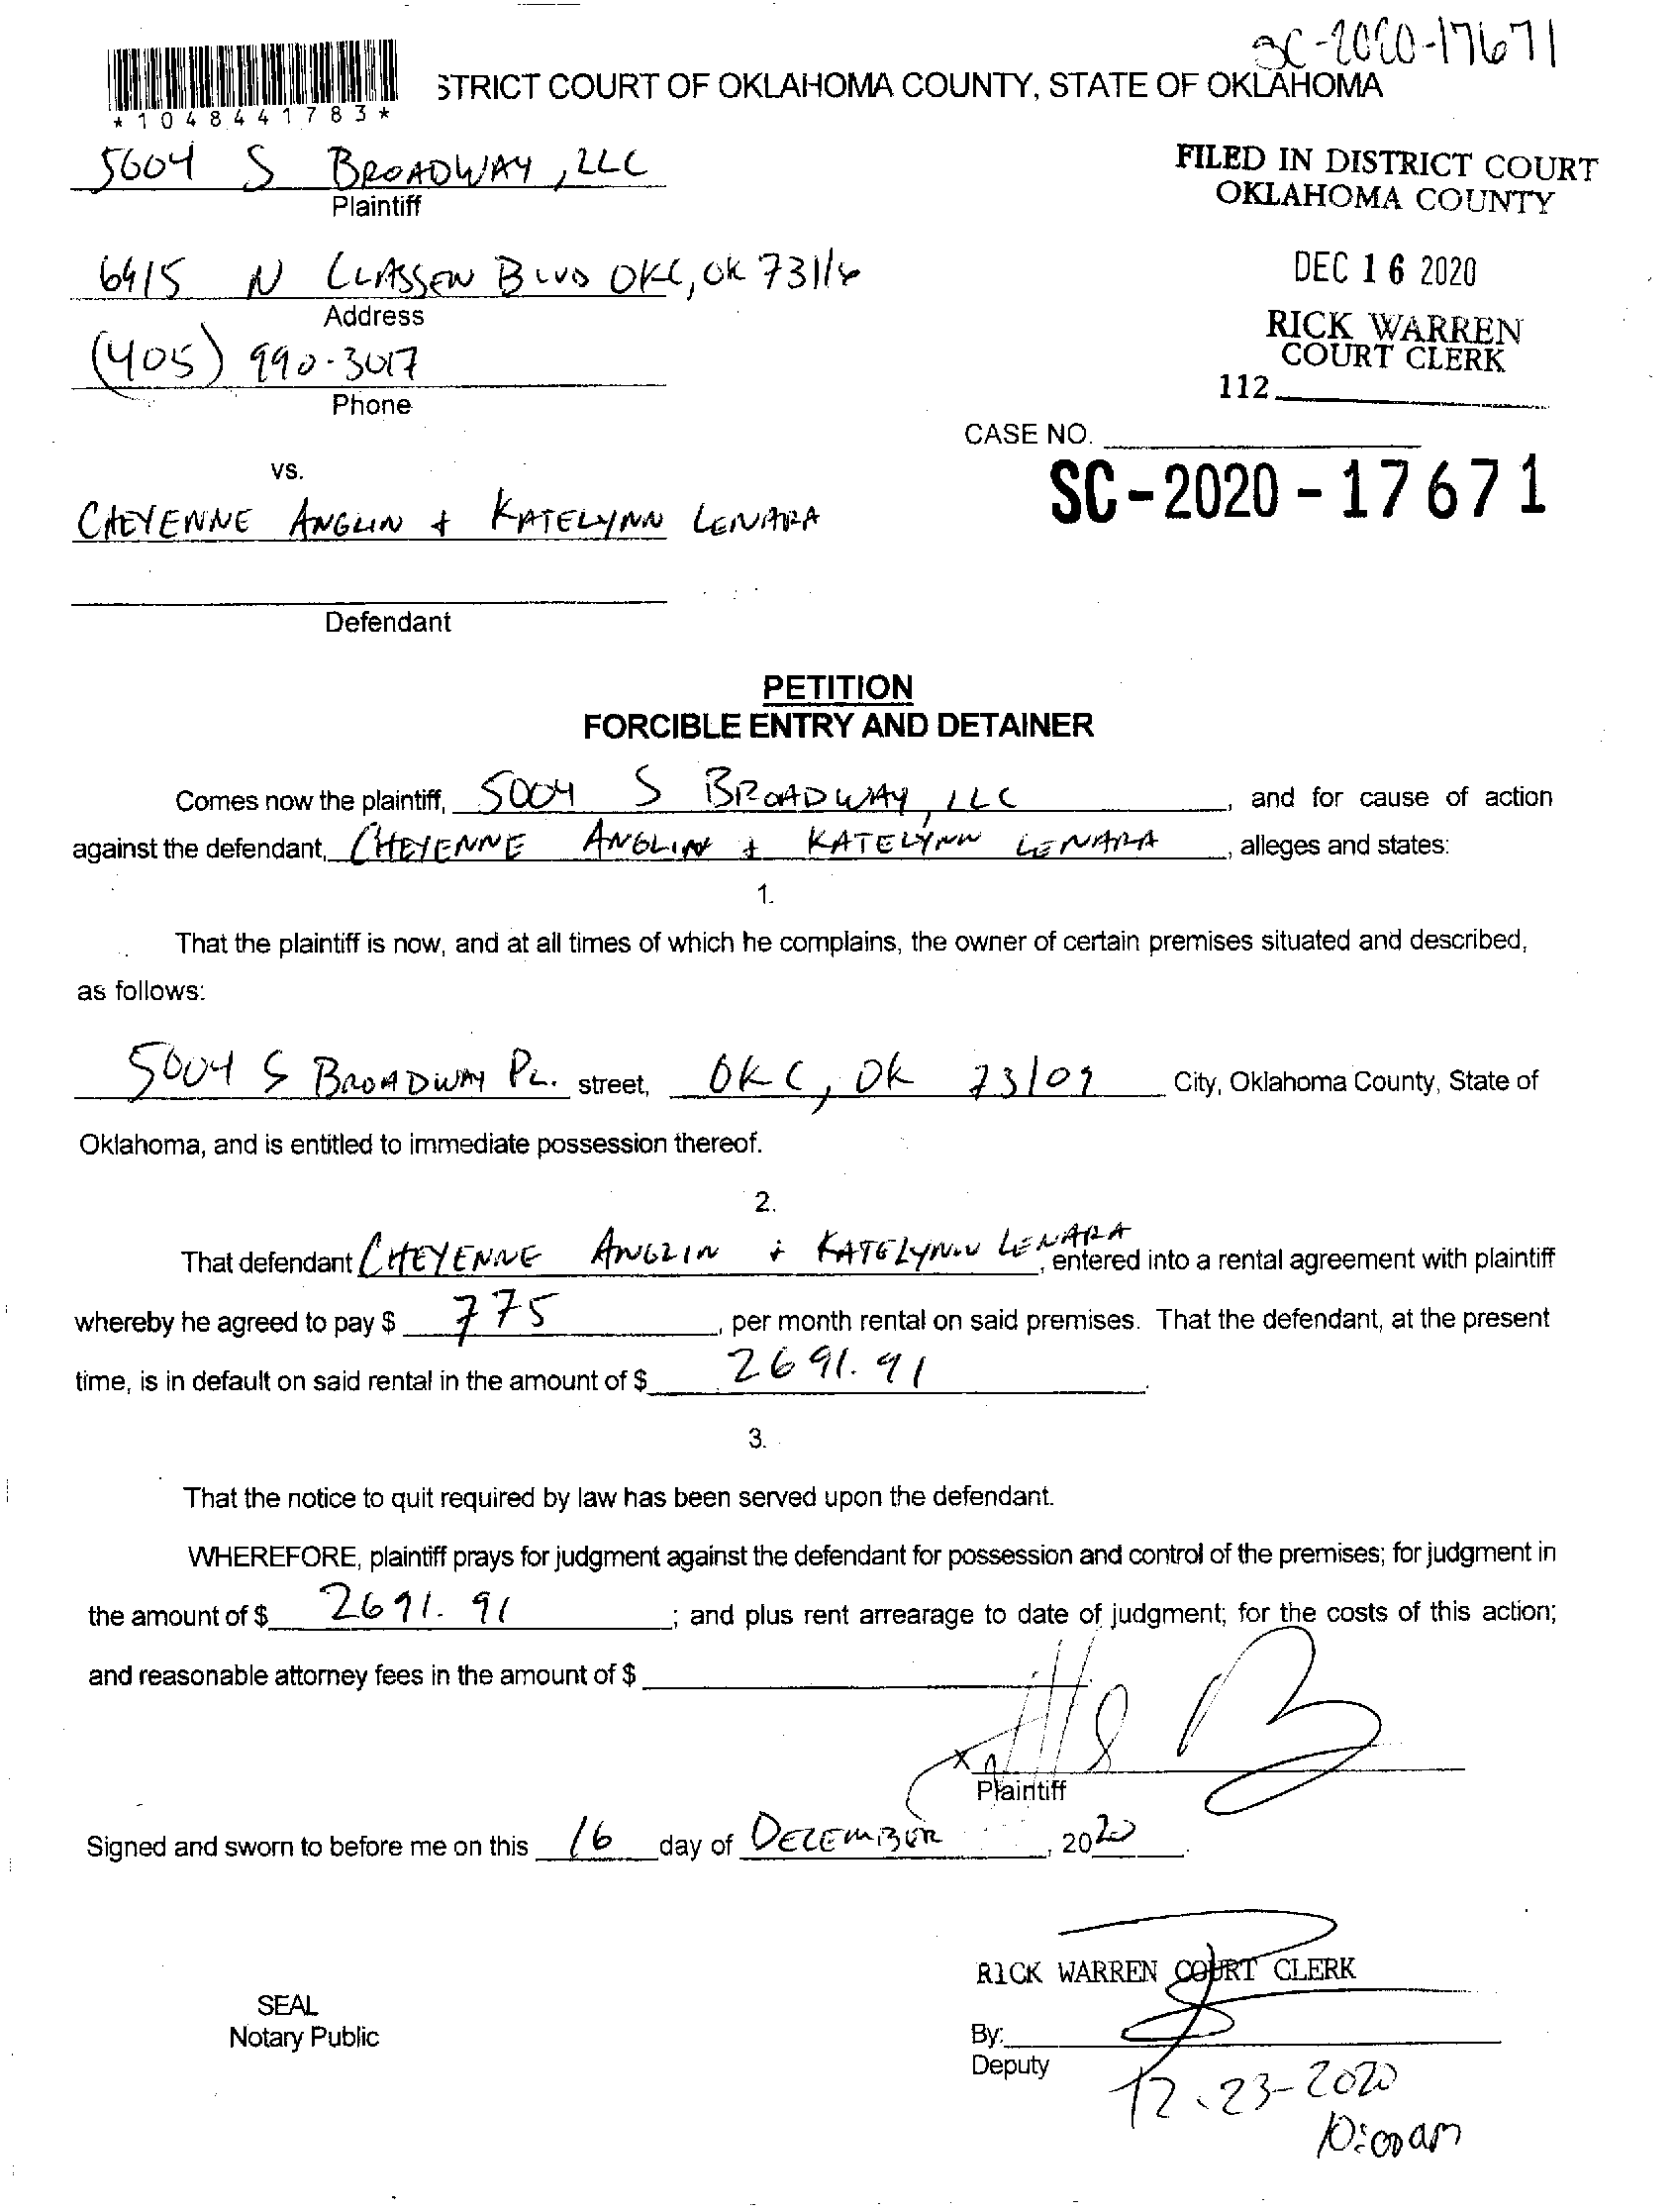 SC-2020-17671
STRICT COURT OF OKLAHOMA COUNTY, STATE OF OKLAHOMA
*1048441783*
5004 S BROADWAY, LLC
Plaintiff
FILED IN DISTRICT COURT
OKLAHOMA COUNTY
6415 N CLASSEN BLVD OKC, OK 73116
Address
DEC 16 2020
(405) 990-3017
Phone
RICK WARREN
COURT CLERK
112
CASE NO.
SC-2020-17671
vs.
CHEYENNE ANGLIN + KATELYNN LENARA
Defendant
PETITION
FORCIBLE ENTRY AND DETAINER
Comes now the plaintiff, 5004 S BROADWAY, LLC, and for cause of action
against the defendant, CHEYENNE ANGLIN + KATELYNN LENARA, alleges and states:
1.
That the plaintiff is now, and at all times of which he complains, the owner of certain premises situated and described,
as follows:
5004 S BROADWAY PL. street, OKC, OK 73109 City, Oklahoma County, State of
Oklahoma, and is entitled to immediate possession thereof.
2.
That defendant CHEYENNE ANGLIN + KATELYNN LENARA, entered into a rental agreement with plaintiff
whereby he agreed to pay $ 775, per month rental on said premises. That the defendant, at the present
time, is in default on said rental in the amount of $ 2691.91.
3.
That the notice to quit required by law has been served upon the defendant.
WHEREFORE, plaintiff prays for judgment against the defendant for possession and control of the premises; for judgment in
the amount of $ 2691.91; and plus rent arrearage to date of judgment; for the costs of this action;
and reasonable attorney fees in the amount of $
X
Plaintiff
Signed and sworn to before me on this 16 day of DECEMBER, 2020.
RICK WARREN COURT CLERK
SEAL
Notary Public
By:
Deputy
12-23-2020
10:00am